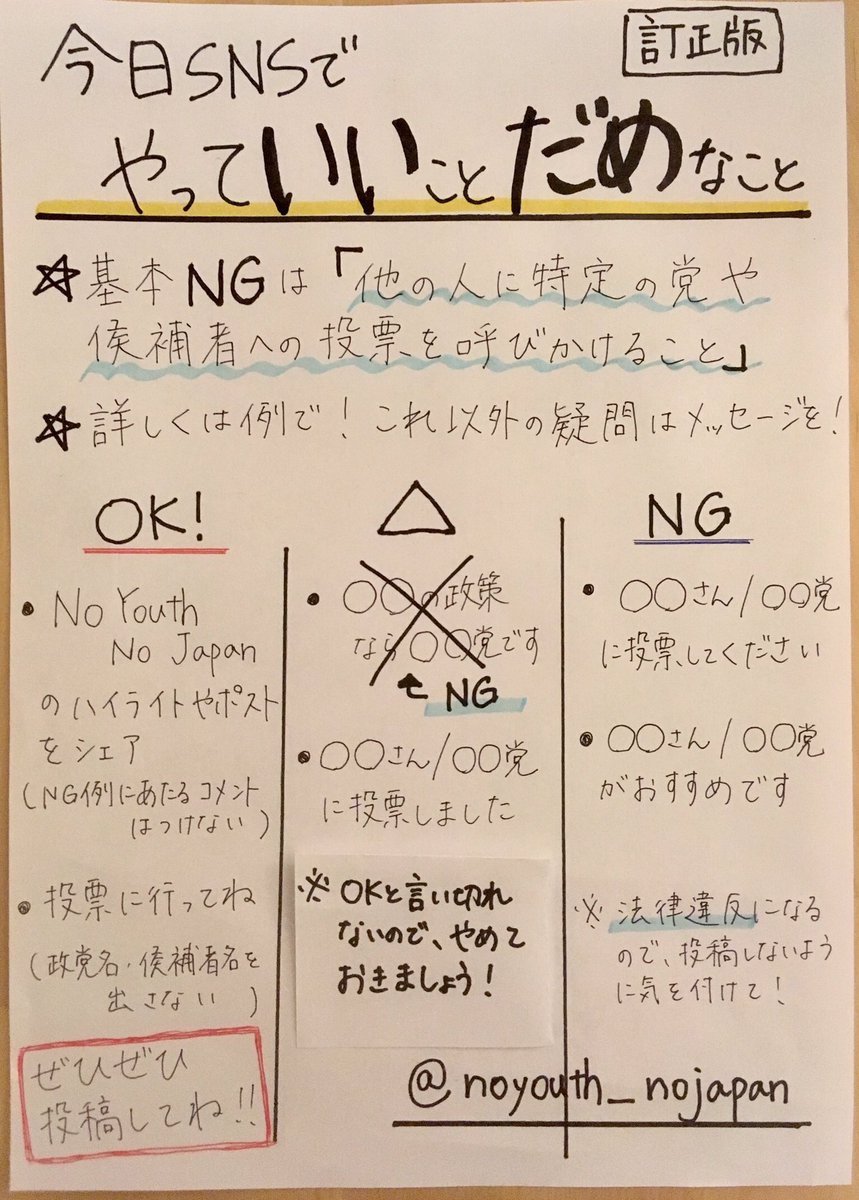 訂正版
今日SNSで
やっていいことだめなこと
☆基本NGは「他の人に特定の党や
候補者への投票を呼びかけること」
☆詳しくは例で！これ以外の疑問はメッセージを！
OK!
・No Youth
No Japan
のハイライトやポスト
をシェア
(NG例にあたるコメント
はつけない)
・投票に行ってね
(政党名・候補者名を
出さない)
ぜひぜひ
投稿してね!!
△
・○○の政策
なら○○党です
↑NG
・○○さん/○○党
に投票しました
※OKと言い切れ
ないので、やめて
おきましょう！
NG
・○○さん/○○党
に投票してください
・○○さん/○○党
がおすすめです
※法律違反になる
ので、投稿しないよう
に気を付けて！
@noyouth_nojapan